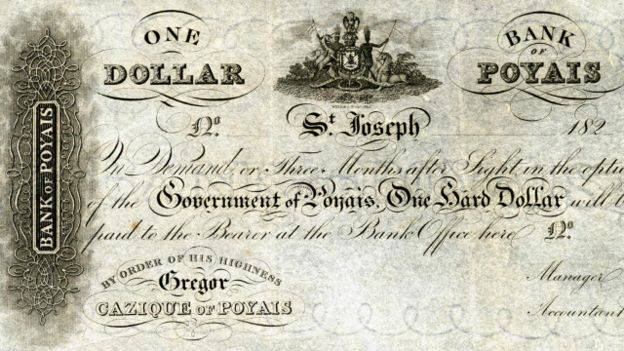 ONE DOLLAR
BANK OF POYAIS
BANK OF POYAIS
No. St. Joseph 182
On Demand or Three Months after Sight in the optio
of the Government of Poyais, One Hard Dollar will b
paid to the Bearer at the Bank Office here No.
BY ORDER OF HIS HIGHNESS
Gregor
CAZIQUE OF POYAIS
Manager
Accountant